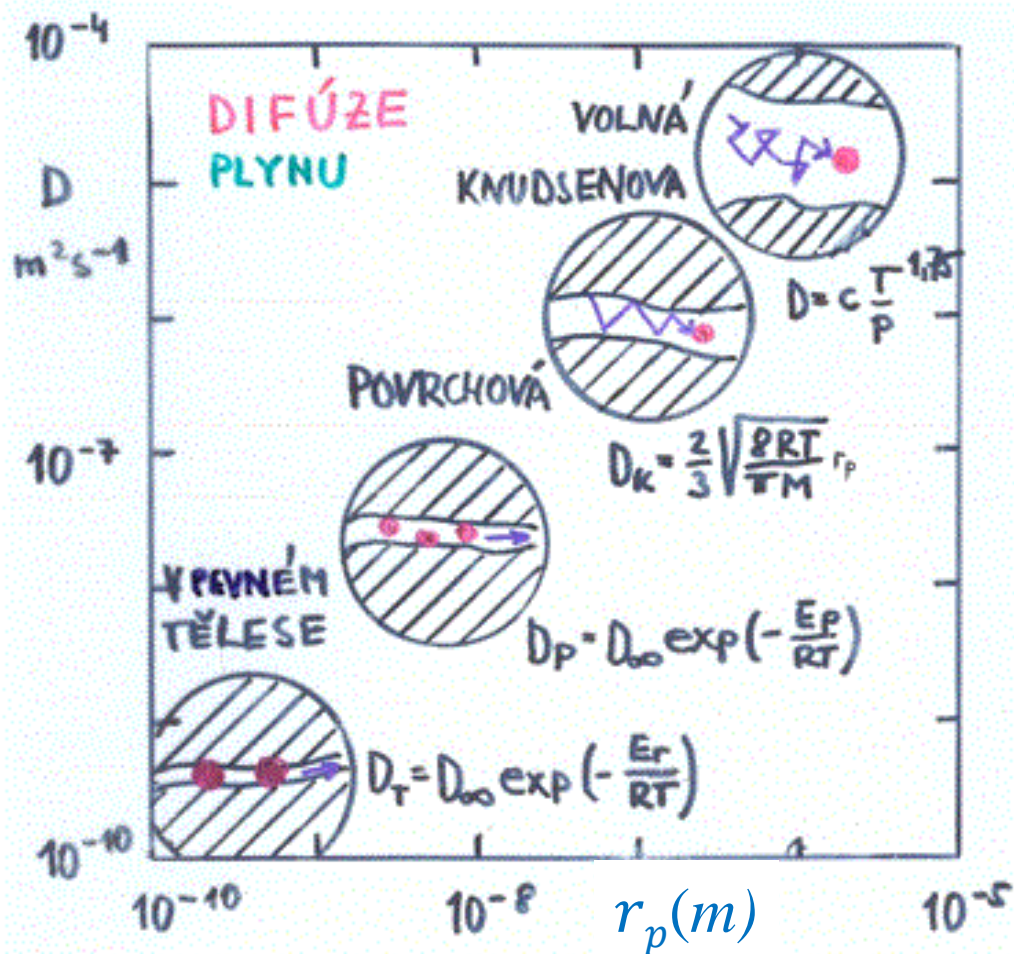 10⁻⁴
DIFÚZE
PLYNU
VOLNÁ
D
m²s⁻¹
KNUDSENOVA
D = c T^1,75 / p
POVRCHOVÁ
D_K = 2/3 √(8RT/πM) r_p
10⁻⁷
V PEVNÉM
TĚLESE
D_P = D_∞ exp(-E_P/RT)
D_T = D_∞ exp(-E_r/RT)
10⁻¹⁰
10⁻¹⁰ 10⁻⁸ r_p(m) 10⁻⁵